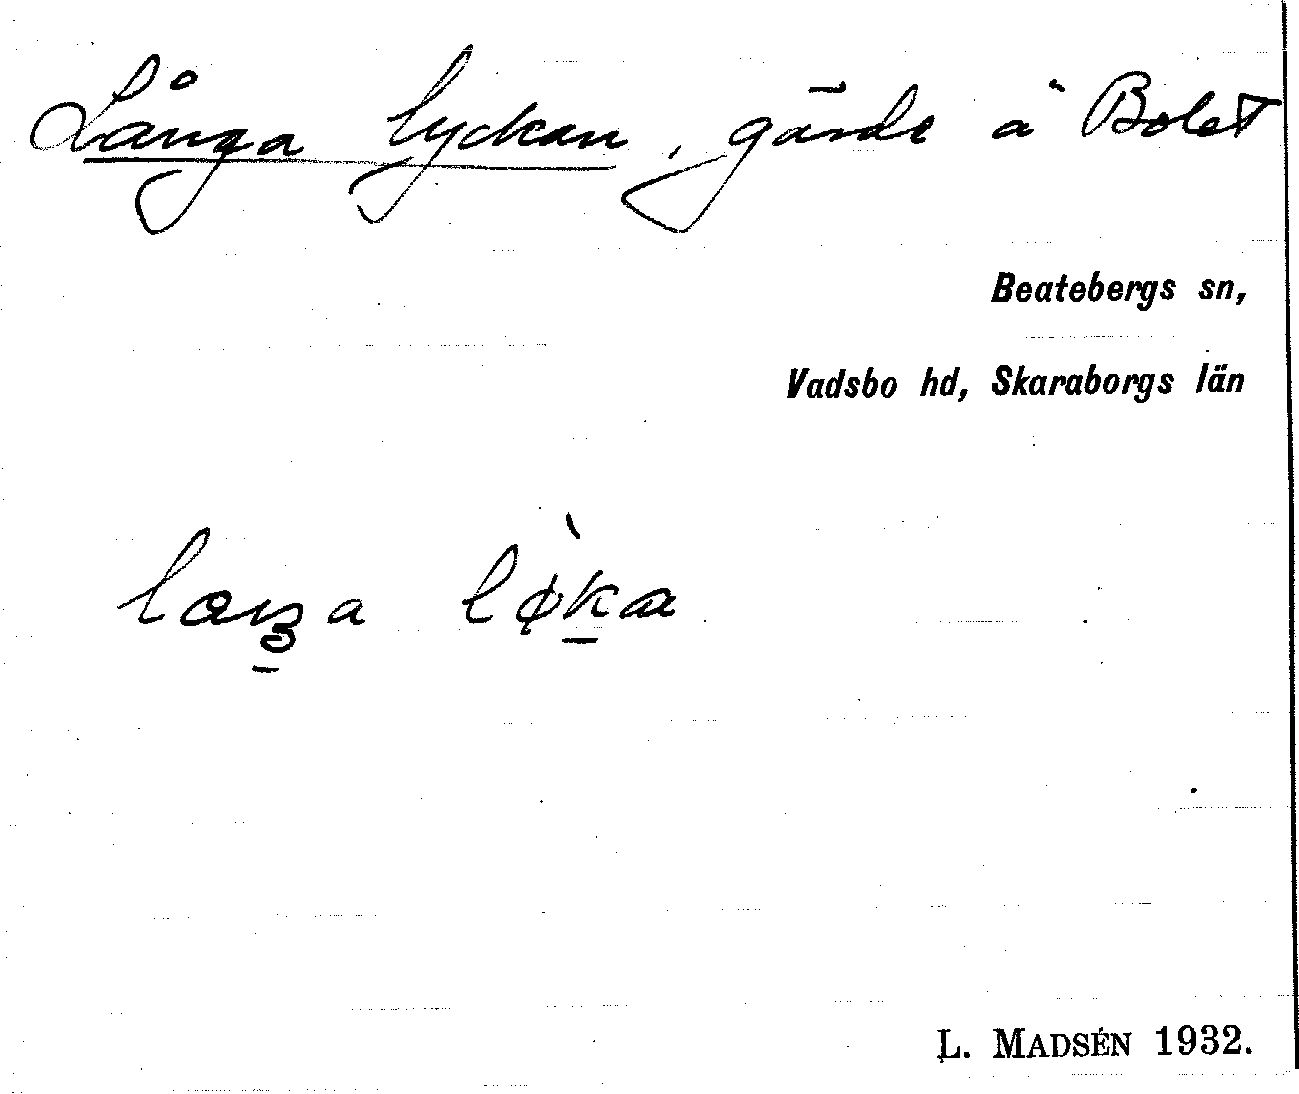 Långa lyckan, gärde å Bolet
Beatebergs sn,
Vadsbo hd, Skaraborgs län
L. MADSÉN 1932.